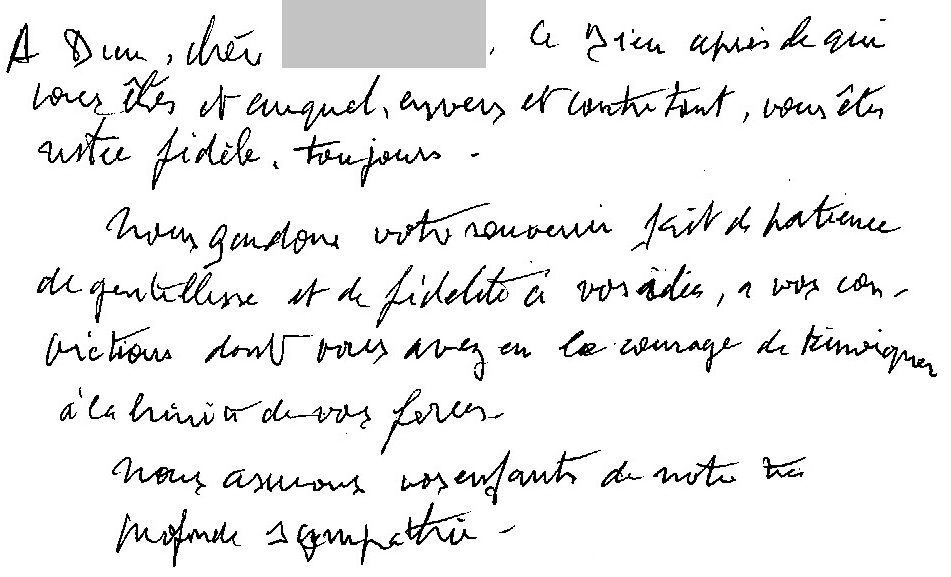 A Dieu, chère , ce Dieu auprès de qui
vous êtes et auquel, envers et contre tout, vous êtes
restée fidèle, toujours.
Nous gardons votre souvenir fait de patience
de gentillesse et de fidélité à vos idées, à vos con-
victions dont vous avez eu le courage de témoigner
à la limite de vos forces.
Nous assurons vos enfants de notre très
profonde sympathie.